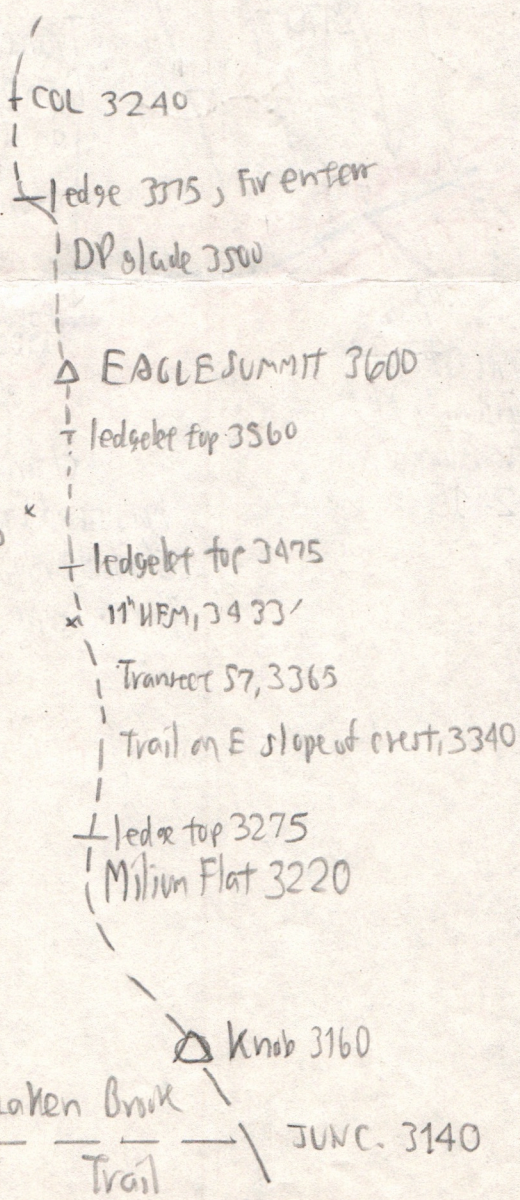 COL 3240
ledge 3375, Fir enters
DP glade 3500
EAGLE SUMMIT 3600
ledgelet top 3560
ledgelet top 3475
11" HEM, 3433'
Transect 57, 3365
Trail on E slope of crest, 3340
ledge top 3275
Milium Flat 3220
Knob 3160
Brook
JUNC. 3140
Trail